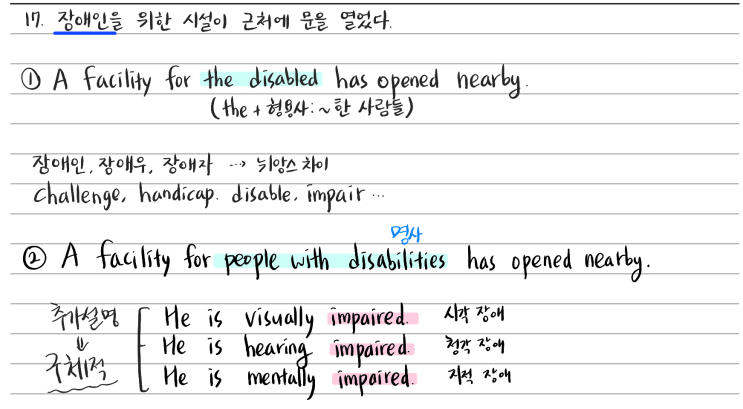 17. 장애인을 위한 시설이 근처에 문을 열었다.
① A facility for the disabled has opened nearby.
(the + 형용사 : ~한 사람들)
장애인, 장애우, 장애자 ⋯→ 뉘앙스 차이
challenge, handicap. disable, impair ⋯
명사
② A facility for people with disabilities has opened nearby.
추가설명 He is visually impaired. 시각 장애
⇓ He is hearing impaired. 청각 장애
구체적 He is mentally impaired. 지적 장애